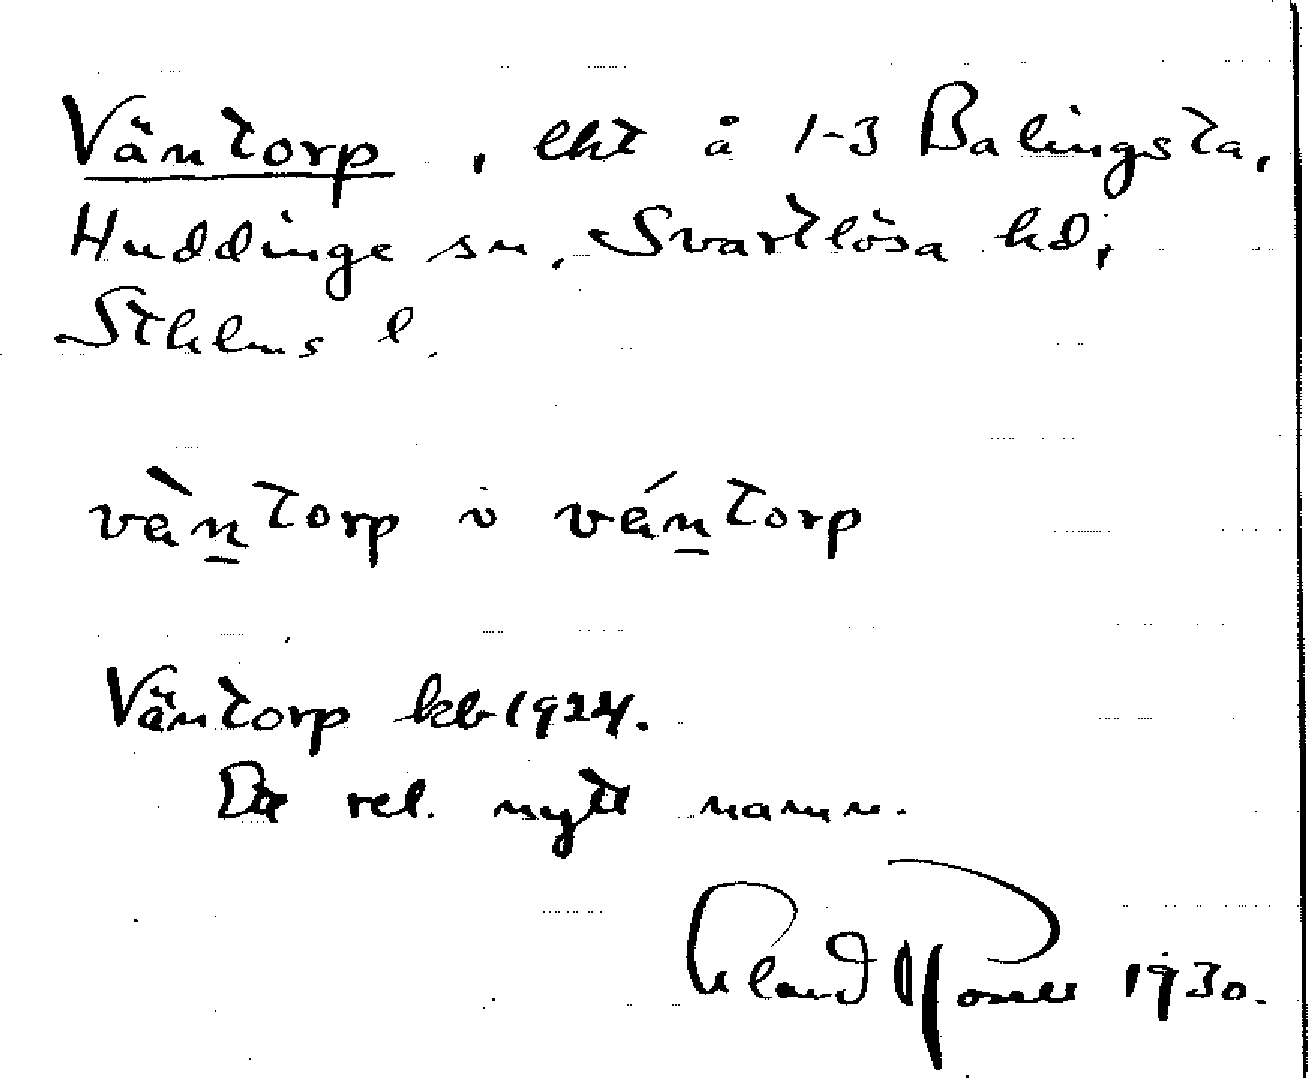 Väntorp, lht å 1-3 Balingsta,
Huddinge sn, Svartlösa hd,
Sthlms l.
vàntorp o vántorp
Väntorp kb 1924.
Ett rel. nytt namn.
1930.